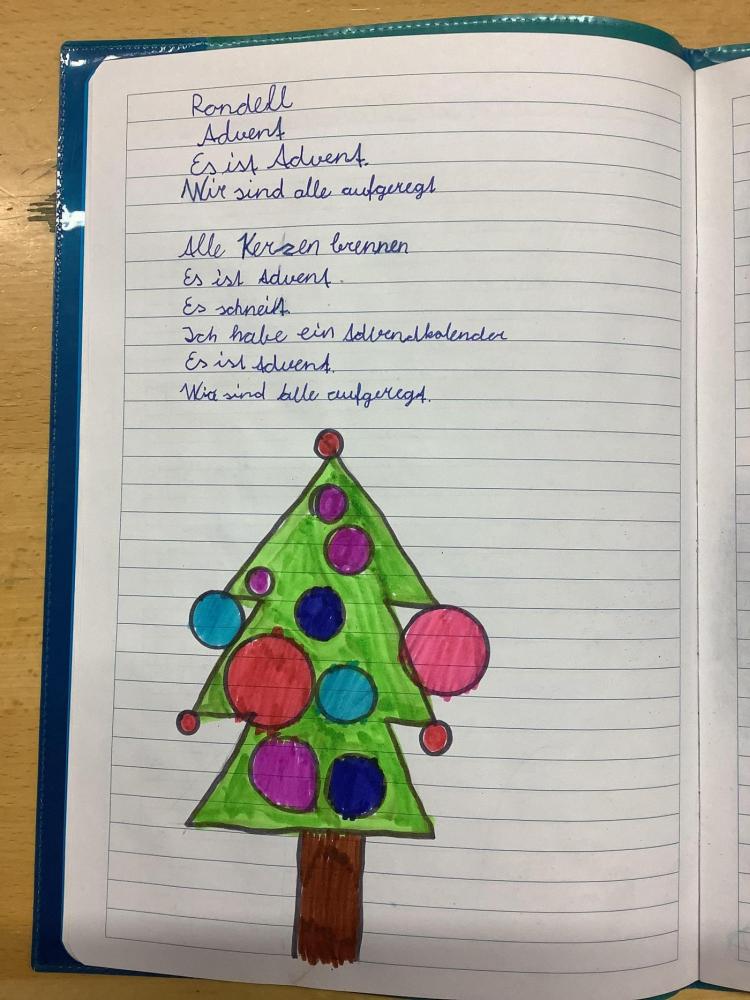 Rondell
Advent
Es ist Advent.
Wir sind alle aufgeregt
Alle Kerzen brennen
Es ist Advent.
Es schneit.
Ich habe ein Advendkalender
Es ist Advent.
Wir sind alle aufgeregt.